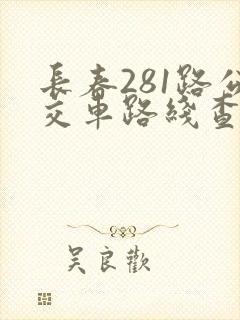 長春281路公
交車路綫查
吴良歡